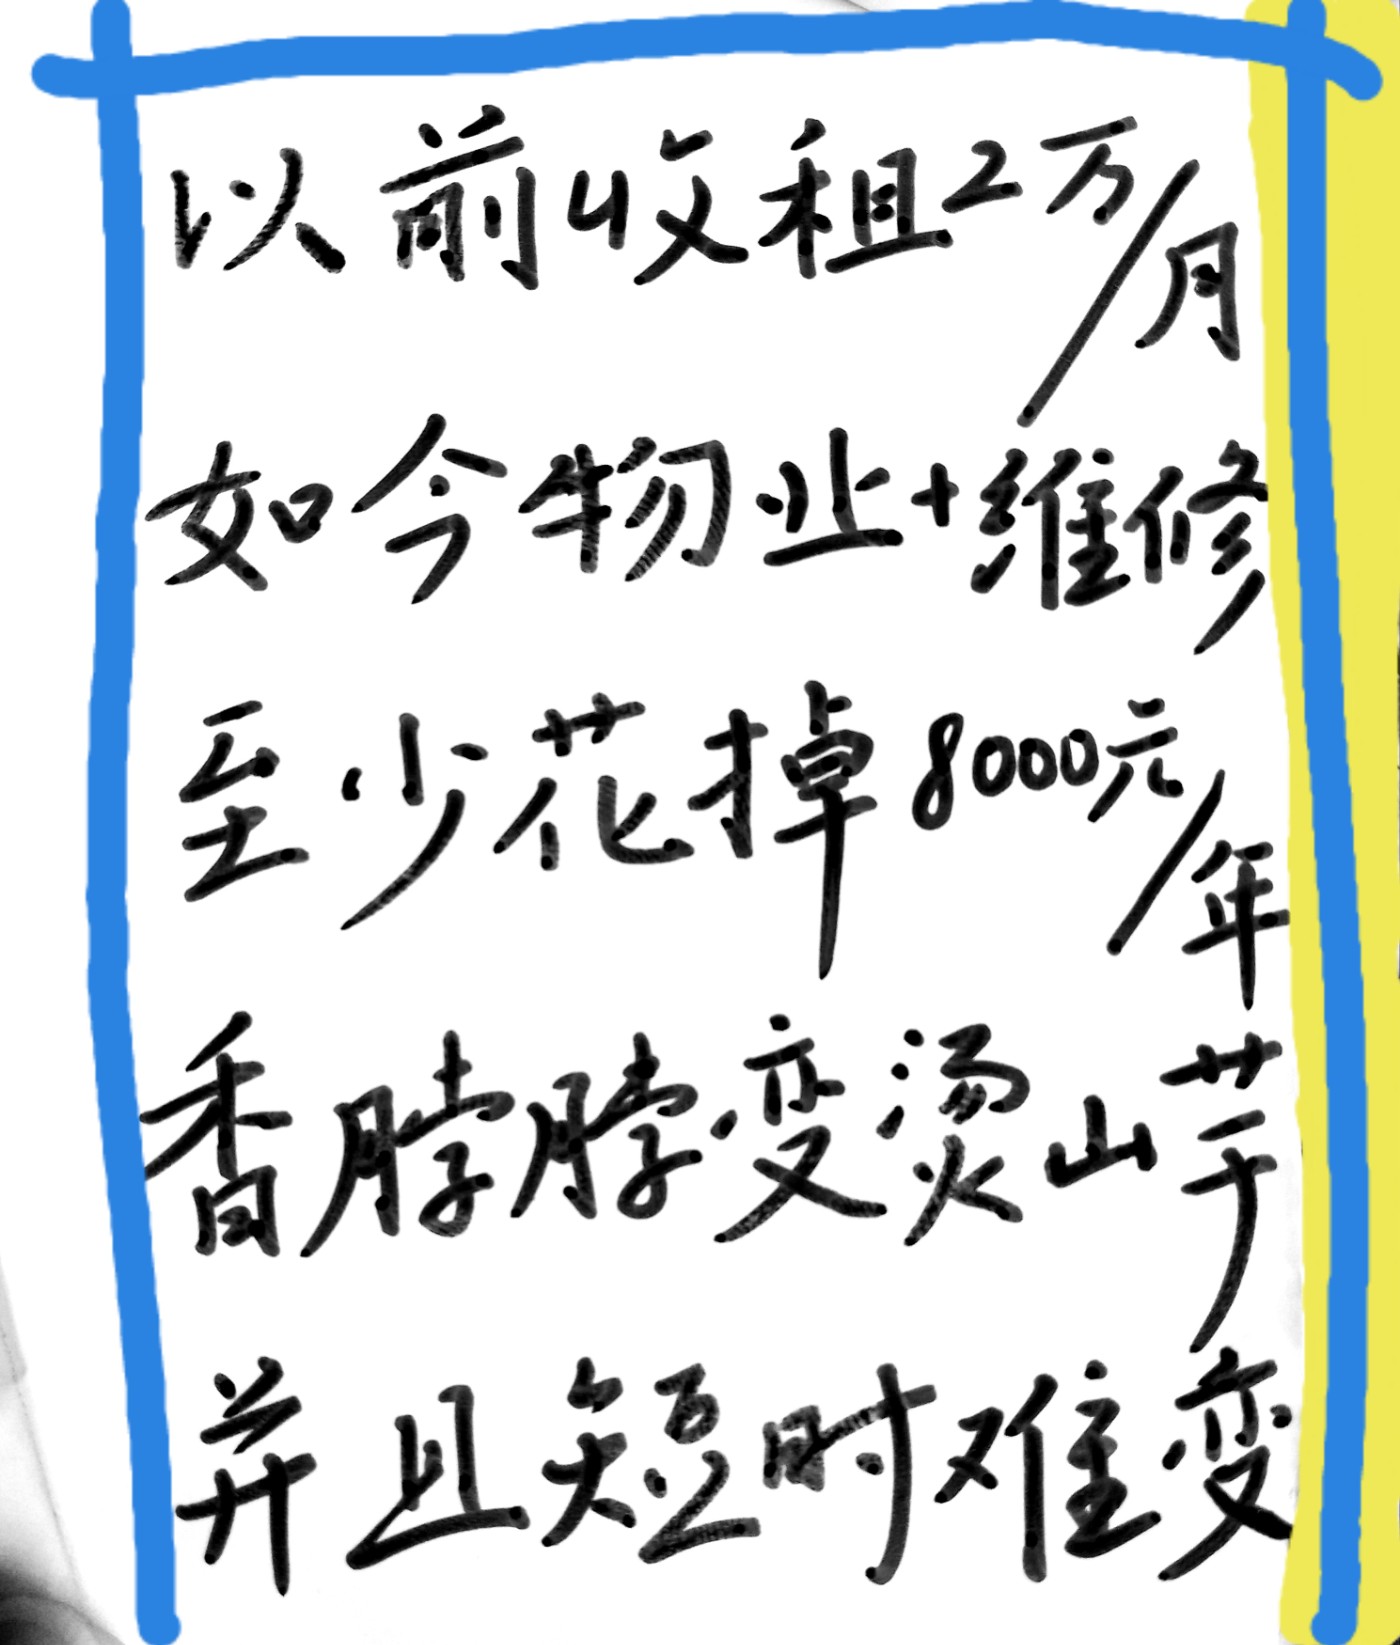 以前收租2万/月
如今物业+维修
至少花掉8000元/年
香脖脖变烫山芋
并且短时难变